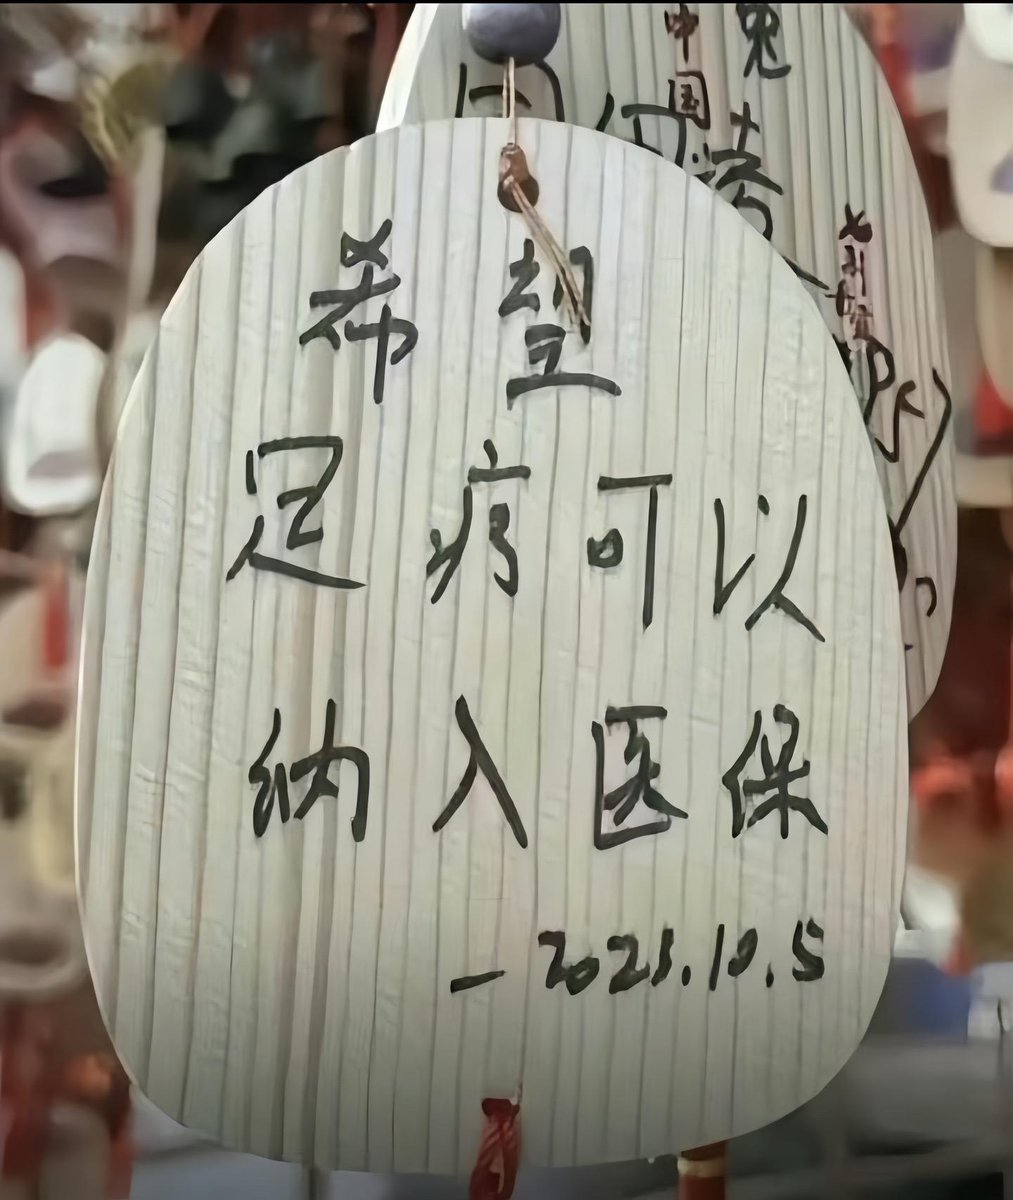 希望
足疗可以
纳入医保
-2023.10.5
中国